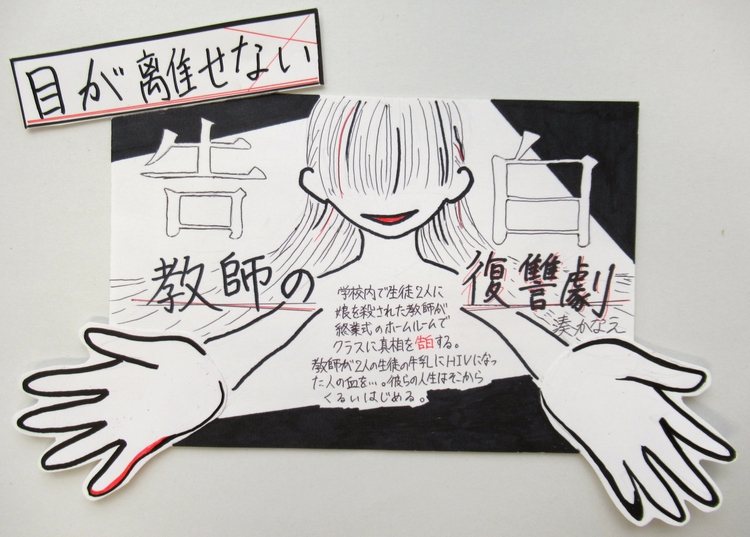 目が離せない
告白
教師の復讐劇
湊かなえ
学校内で生徒2人に
娘を殺された教師が
終業式のホームルームで
クラスに真相を告白する。
教師が2人の生徒の牛乳にHIVになっ
た人の血を…。彼らの人生はそこから
くるいはじめる。